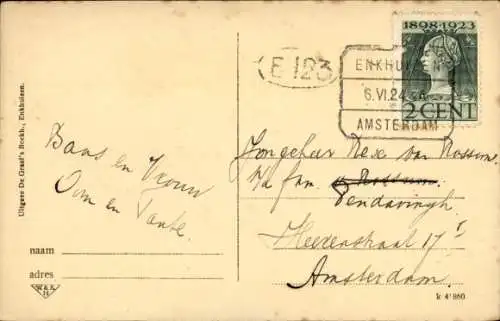 1898-1923
2 CENT
E 123
ENKHUIZEN
6.VI.24
AMSTERDAM
Uitgave De Graaf's Boekh., Enkhuizen.
Baas en Vrouw
Oom en Tante.
Jongeheer Rex van Rossum.
p/a fam. v Rossum.
Pendavingh
Heerenstraat 17
Amsterdam.
naam
adres
k 4*860